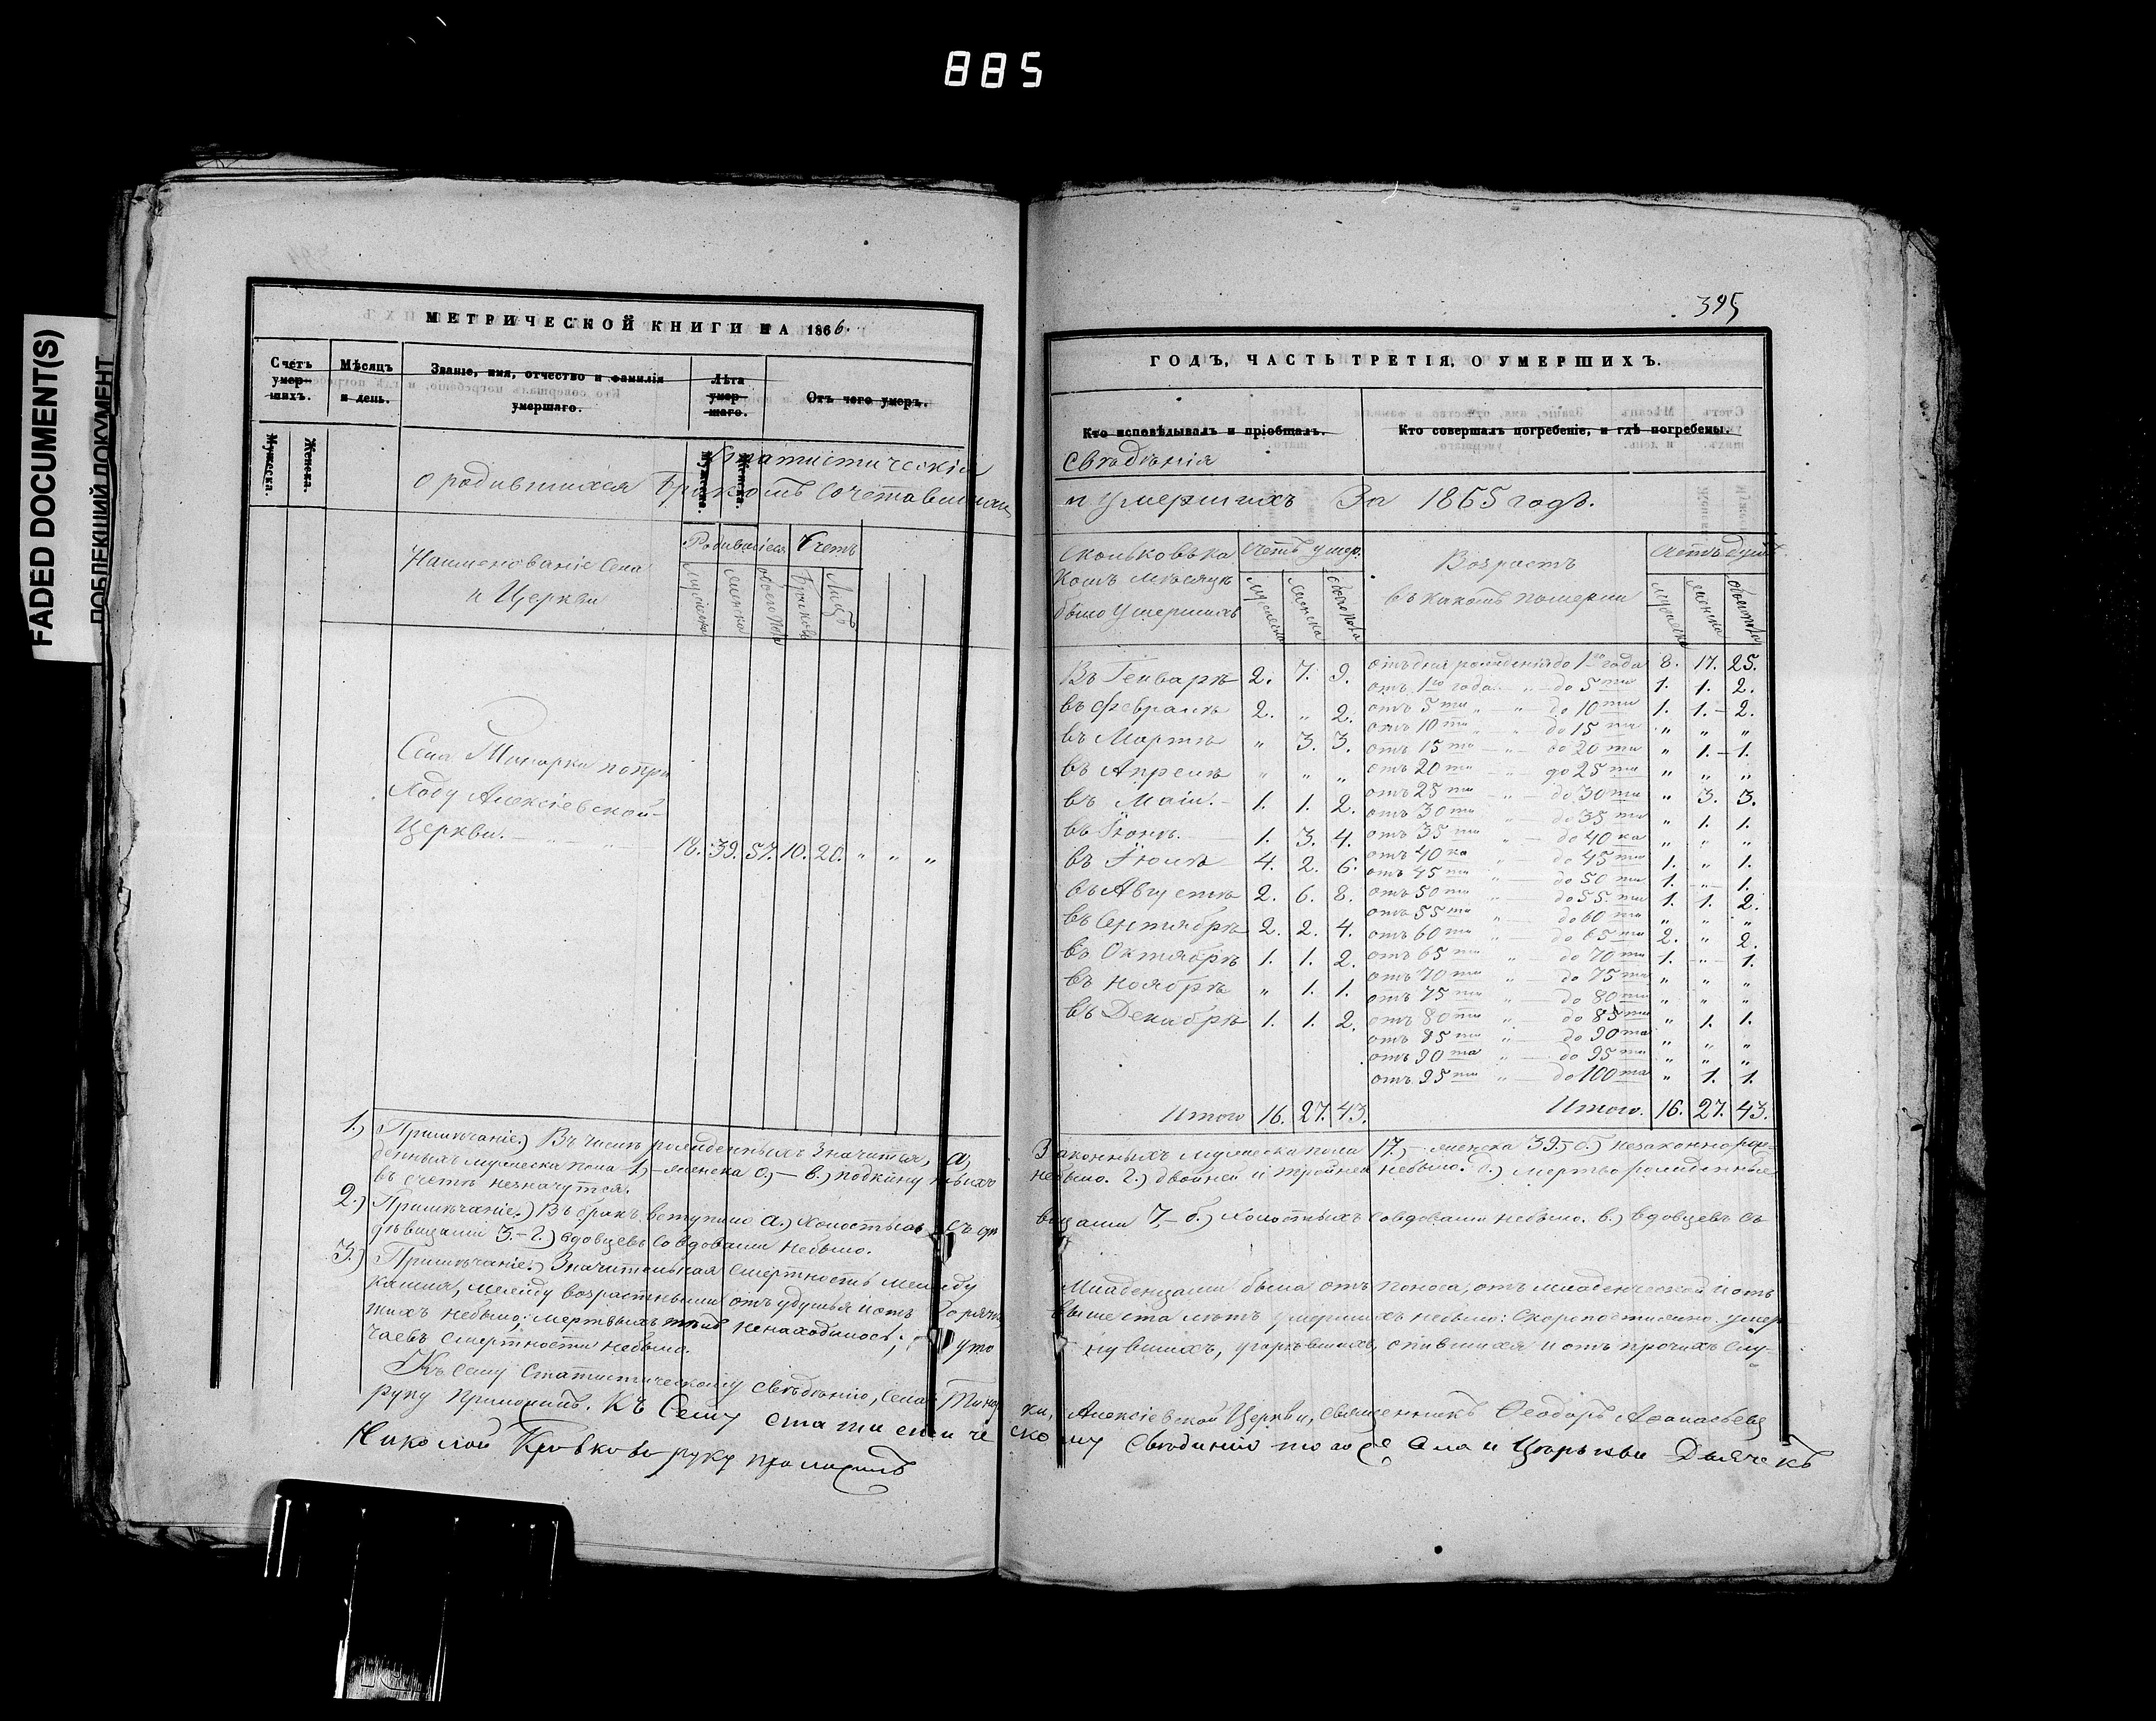 885
FADED DOCUMENT(S)
ПОБЛЕКШИЙ ДОКУМЕНТ
МЕТРИЧЕСКОЙ КНИГИ НА 1866.
Счетъ умерших. Мѣсяцъ и день. Званіе, имя, отчество и фамилія умершаго. Лѣта умершаго. Отъ чего умеръ.
Мужеска. Женска. Мужеска. Женска.
Статистическія
о родившихся бракомъ сочетавшихся
Наименованіе Села и Церкви
Родившіеся Счетъ
мужеска женска обоего пола браковъ Лицъ
Села приходу Алексіевской Церкви. 18. 39. 57. 10. 20. " " "
1.) Примѣчаніе.) Въ числѣ рожденныхъ значится, а,
денныхъ мужеска пола 1,- женска 0,- в.) подкину
въ счетѣ незначутся.
2.) Примѣчаніе.) Въ бракъ вступило а.) холостыхъ съ
дѣвицами 3.- г.) вдовцевъ со вдовами небыло.
3.) Примѣчаніе.) Значительная смертность между
кашля, между возрастными отъ удушья и отъ горячк
шихъ небыло; мертвыхъ тѣлъ ненаходилось; уто
чаевъ смертности небыло.
Къ сему Статистическому свѣдѣнію, села
руку приложилъ. Къ Сему статистиче
Николай руку приложилъ
395
ГОДЪ, ЧАСТЬ ТРЕТІЯ, О УМЕРШИХЪ.
Кто исповѣдывалъ и пріобщалъ. Кто совершалъ погребеніе, и гдѣ погребены.
Свѣдѣнія
и умершихъ За 1865 годъ.
Сколько въ ка
комъ мѣсяцѣ
было умершихъ
Счетъ умер.
мужеска женска обоего пола
Возрастъ
въ какомъ померли
Счетъ душъ
мужеска женска обоего пола
Въ Генварѣ 2. 7. 9.
въ Февралѣ 2. " 2.
въ Мартѣ " 3. 3.
въ Апрелѣ " " "
въ Маіи. 1. 1. 2.
въ Іюнѣ. 1. 3. 4.
въ Іюлѣ 4. 2. 6.
въ Августѣ 2. 6. 8.
въ Сентябрѣ 2. 2. 4.
въ Октябрѣ 1. 1. 2.
въ Ноябрѣ " 1. 1.
въ Декабрѣ 1. 1. 2.
Итого 16. 27. 43.
отъ дня рожденія до 1го года 8. 17. 25.
отъ 1го года " до 5ти 1. 1. 2.
отъ 5ти " до 10ти 1. 1. 2.
отъ 10ти " до 15ти " " "
отъ 15ти " до 20ти " 1. 1.
отъ 20ти " до 25ти " " "
отъ 25ти " до 30ти " 3. 3.
отъ 30ти " до 35ти " 1. 1.
отъ 35ти " до 40ка " " "
отъ 40ка " до 45ти 1. " 1.
отъ 45ти " до 50ти 1. " 1.
отъ 50ти " до 55ти 1. 1. 2.
отъ 55ти " до 60ти " " "
отъ 60ти " до 65ти 2. " 2.
отъ 65ти " до 70ти 1. " 1.
отъ 70ти " до 75ти " " "
отъ 75ти " до 80ти " " "
отъ 80ти " до 85ти " 1. 1.
отъ 85ти " до 90та " " "
отъ 90та " до 95ти " " "
отъ 95ти " до 100та " 1. 1.
Итого. 16. 27. 43.
Законныхъ мужеска пола 17,- женска 39,- б.) незаконнорож-
небыло. г.) двойней и тройней небыло. д.) мертворожденные
вицами 7,- б.) холостыхъ совдовами небыло. в.) вдовцевъ съ
Младенцами была отъ поноса, отъ младенческой и отъ
выше ста лѣтъ умершихъ небыло: Скоропостижно умер
нувшихъ, угорѣвшихъ, опившихся и отъ прочихъ слу-
ки, Алексіевской Церкви, священникъ Ѳеодоръ Аѳанасьевъ
скому свѣдѣнию тогоже Села и Церькви Дьячекъ